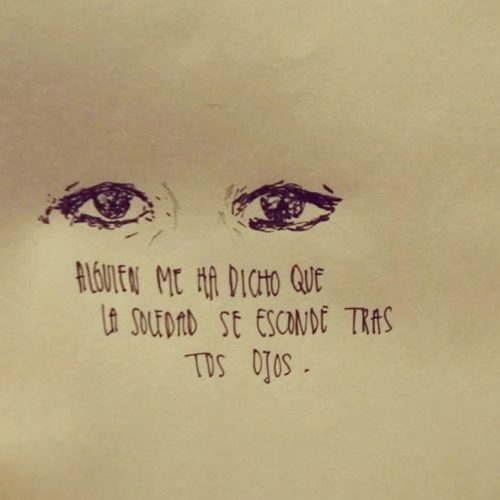 ALGUIEN ME HA DICHO QUE
LA SOLEDAD SE ESCONDE TRAS
TUS OJOS.